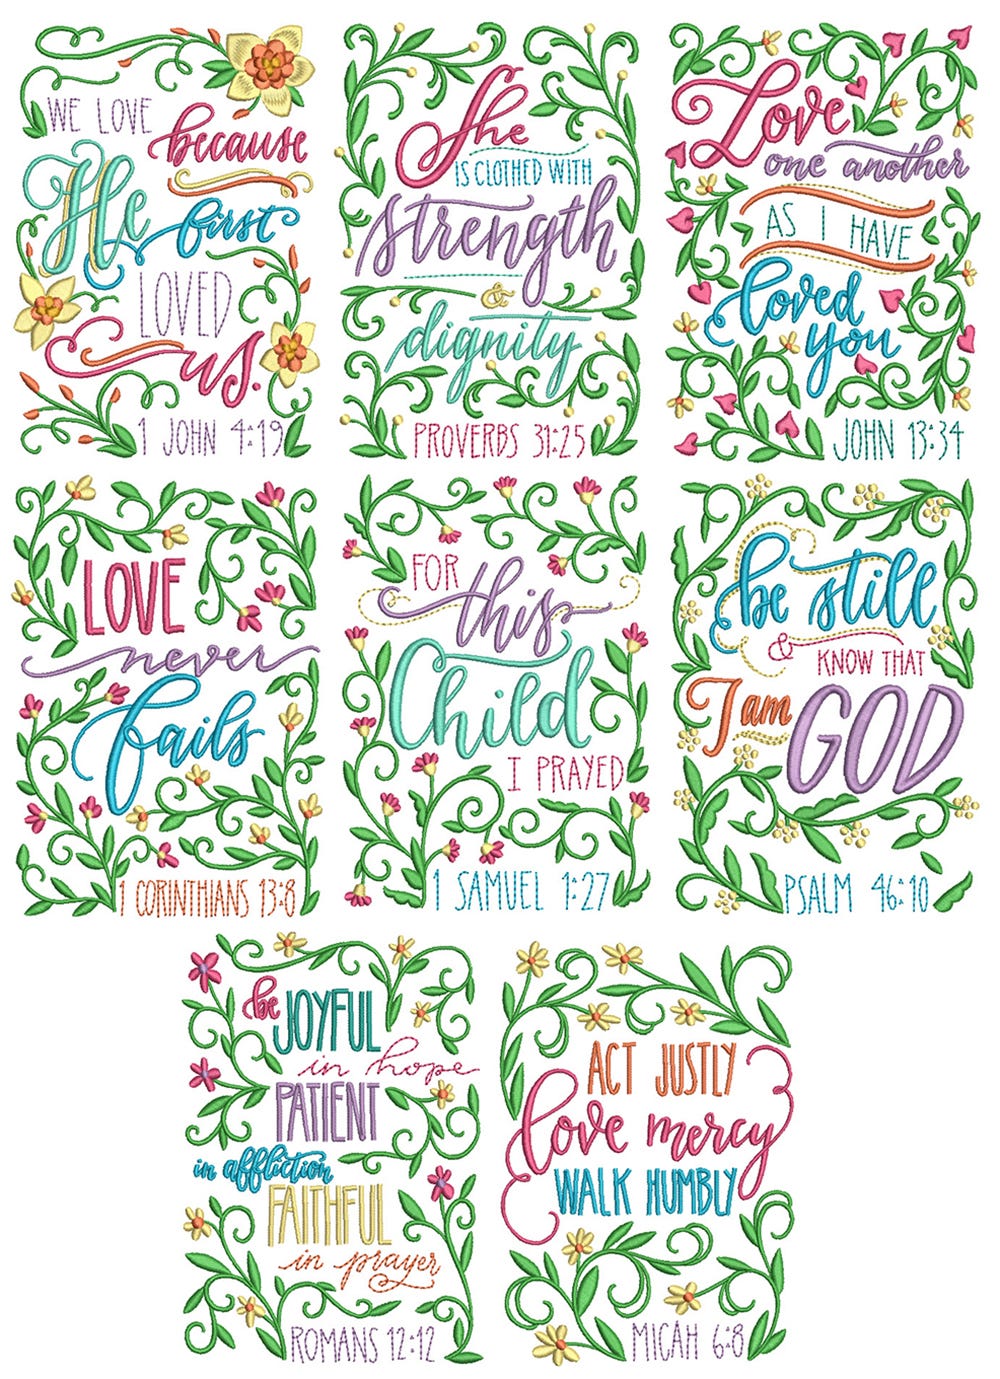 WE LOVE
because
He first
LOVED
us.
1 JOHN 4:19
She
IS CLOTHED WITH
strength
&
dignity
PROVERBS 31:25
Love
one another
AS I HAVE
loved
you
JOHN 13:34
LOVE
never
fails
1 CORINTHIANS 13:8
FOR
this
Child
I PRAYED
1 SAMUEL 1:27
be still
& KNOW THAT
I am
GOD
PSALM 46:10
be JOYFUL
in hope
PATIENT
in affliction
FAITHFUL
in prayer
ROMANS 12:12
ACT JUSTLY
love mercy
WALK HUMBLY
MICAH 6:8